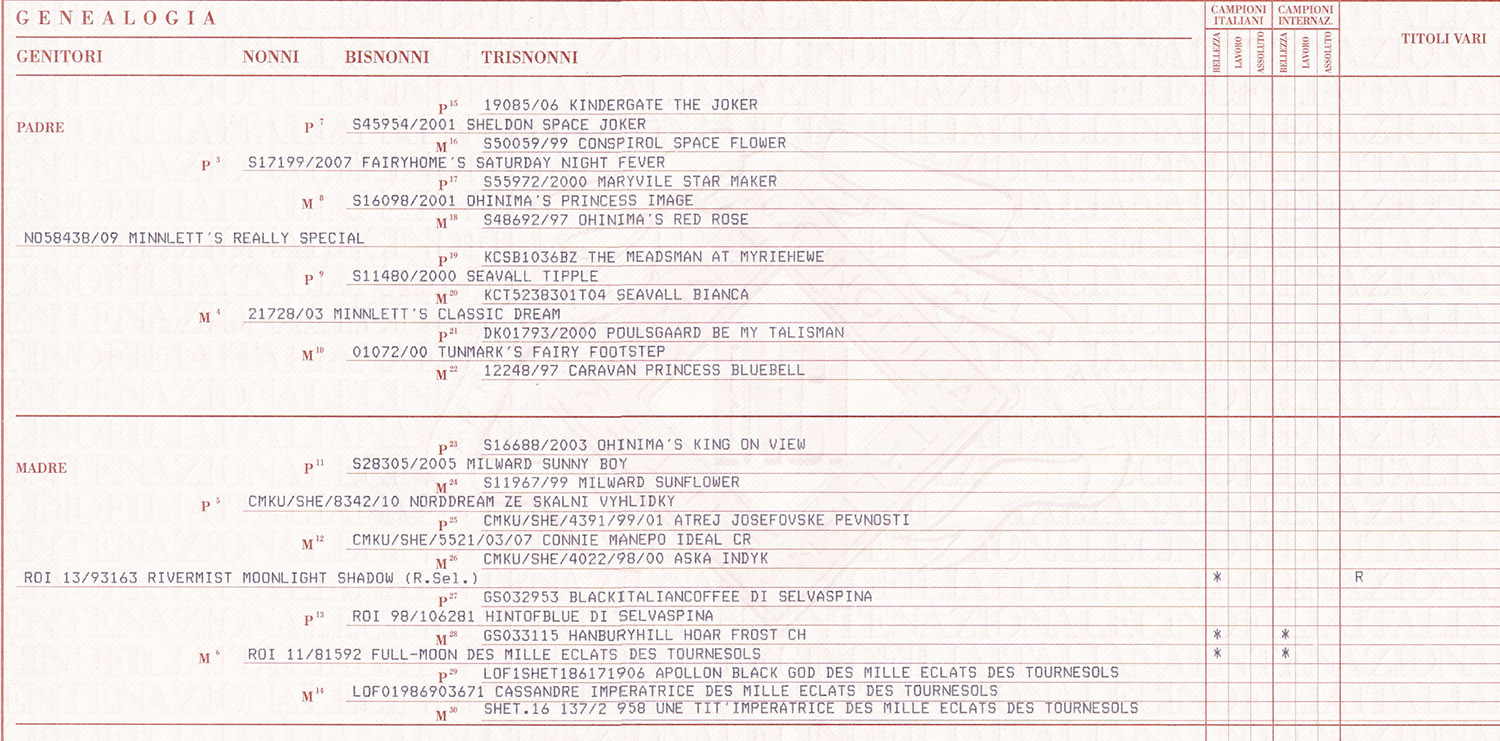 GENEALOGIA
CAMPIONI ITALIANI
CAMPIONI INTERNAZ.
TITOLI VARI
BELLEZZA LAVORO ASSOLUTO BELLEZZA LAVORO ASSOLUTO
GENITORI NONNI BISNONNI TRISNONNI
P15 19085/06 KINDERGATE THE JOKER
PADRE P7 S45954/2001 SHELDON SPACE JOKER
M16 S50059/99 CONSPIROL SPACE FLOWER
P3 S17199/2007 FAIRYHOME'S SATURDAY NIGHT FEVER
P17 S55972/2000 MARYVILE STAR MAKER
M8 S16098/2001 OHINIMA'S PRINCESS IMAGE
M18 S48692/97 OHINIMA'S RED ROSE
NO58438/09 MINNLETT'S REALLY SPECIAL
P19 KCSB1036BZ THE MEADSMAN AT MYRIEHEWE
P9 S11480/2000 SEAVALL TIPPLE
M20 KCT5238301T04 SEAVALL BIANCA
M4 21728/03 MINNLETT'S CLASSIC DREAM
P21 DK01793/2000 POULSGAARD BE MY TALISMAN
M10 01072/00 TUNMARK'S FAIRY FOOTSTEP
M22 12248/97 CARAVAN PRINCESS BLUEBELL
P23 S16688/2003 OHINIMA'S KING ON VIEW
MADRE P11 S28305/2005 MILWARD SUNNY BOY
M24 S11967/99 MILWARD SUNFLOWER
P5 CMKU/SHE/8342/10 NORDDREAM ZE SKALNI VYHLIDKY
P25 CMKU/SHE/4391/99/01 ATREJ JOSEFOVSKE PEVNOSTI
M12 CMKU/SHE/5521/03/07 CONNIE MANEPO IDEAL CR
M26 CMKU/SHE/4022/98/00 ASKA INDYK
ROI 13/93163 RIVERMIST MOONLIGHT SHADOW (R.Sel.) * R
P27 GS032953 BLACKITALIANCOFFEE DI SELVASPINA
P13 ROI 98/106281 HINTOFBLUE DI SELVASPINA
M28 GS033115 HANBURYHILL HOAR FROST CH * *
M6 ROI 11/81592 FULL-MOON DES MILLE ECLATS DES TOURNESOLS * *
P29 LOF1SHET186171906 APOLLON BLACK GOD DES MILLE ECLATS DES TOURNESOLS
M14 LOF01986903671 CASSANDRE IMPERATRICE DES MILLE ECLATS DES TOURNESOLS
M30 SHET.16 137/2 958 UNE TIT'IMPERATRICE DES MILLE ECLATS DES TOURNESOLS